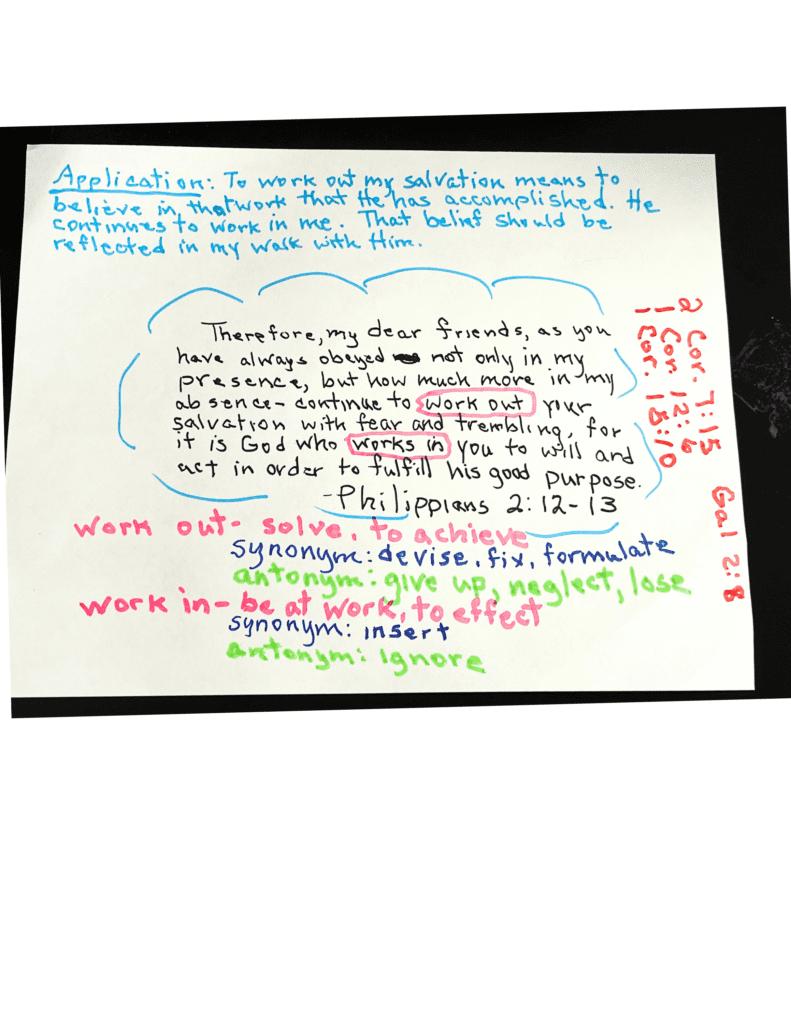 Application: To work out my salvation means to
believe in that work that He has accomplished. He
continues to work in me. That belief should be
reflected in my walk with Him.
Therefore, my dear friends, as you
have always obeyed not only in my
presence, but how much more in my
absence- continue to work out your
salvation with fear and trembling, for
it is God who works in you to will and
act in order to fulfill his good purpose.
-Philippians 2:12-13
2 Cor. 7:15
1 Cor. 12:6
1 Cor. 15:10
Gal 2:8
work out- solve, to achieve
synonym: devise, fix, formulate
antonym: give up, neglect, lose
work in- be at work, to effect
synonym: insert
antonym: ignore